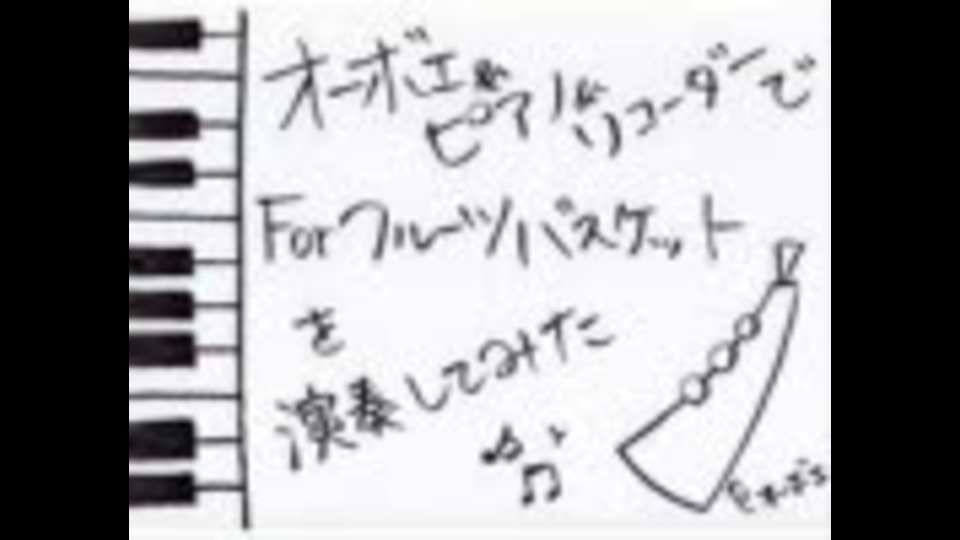 オーボエ&ピアノ&リコーダーで
Forフルーツバスケット
を
演奏してみた